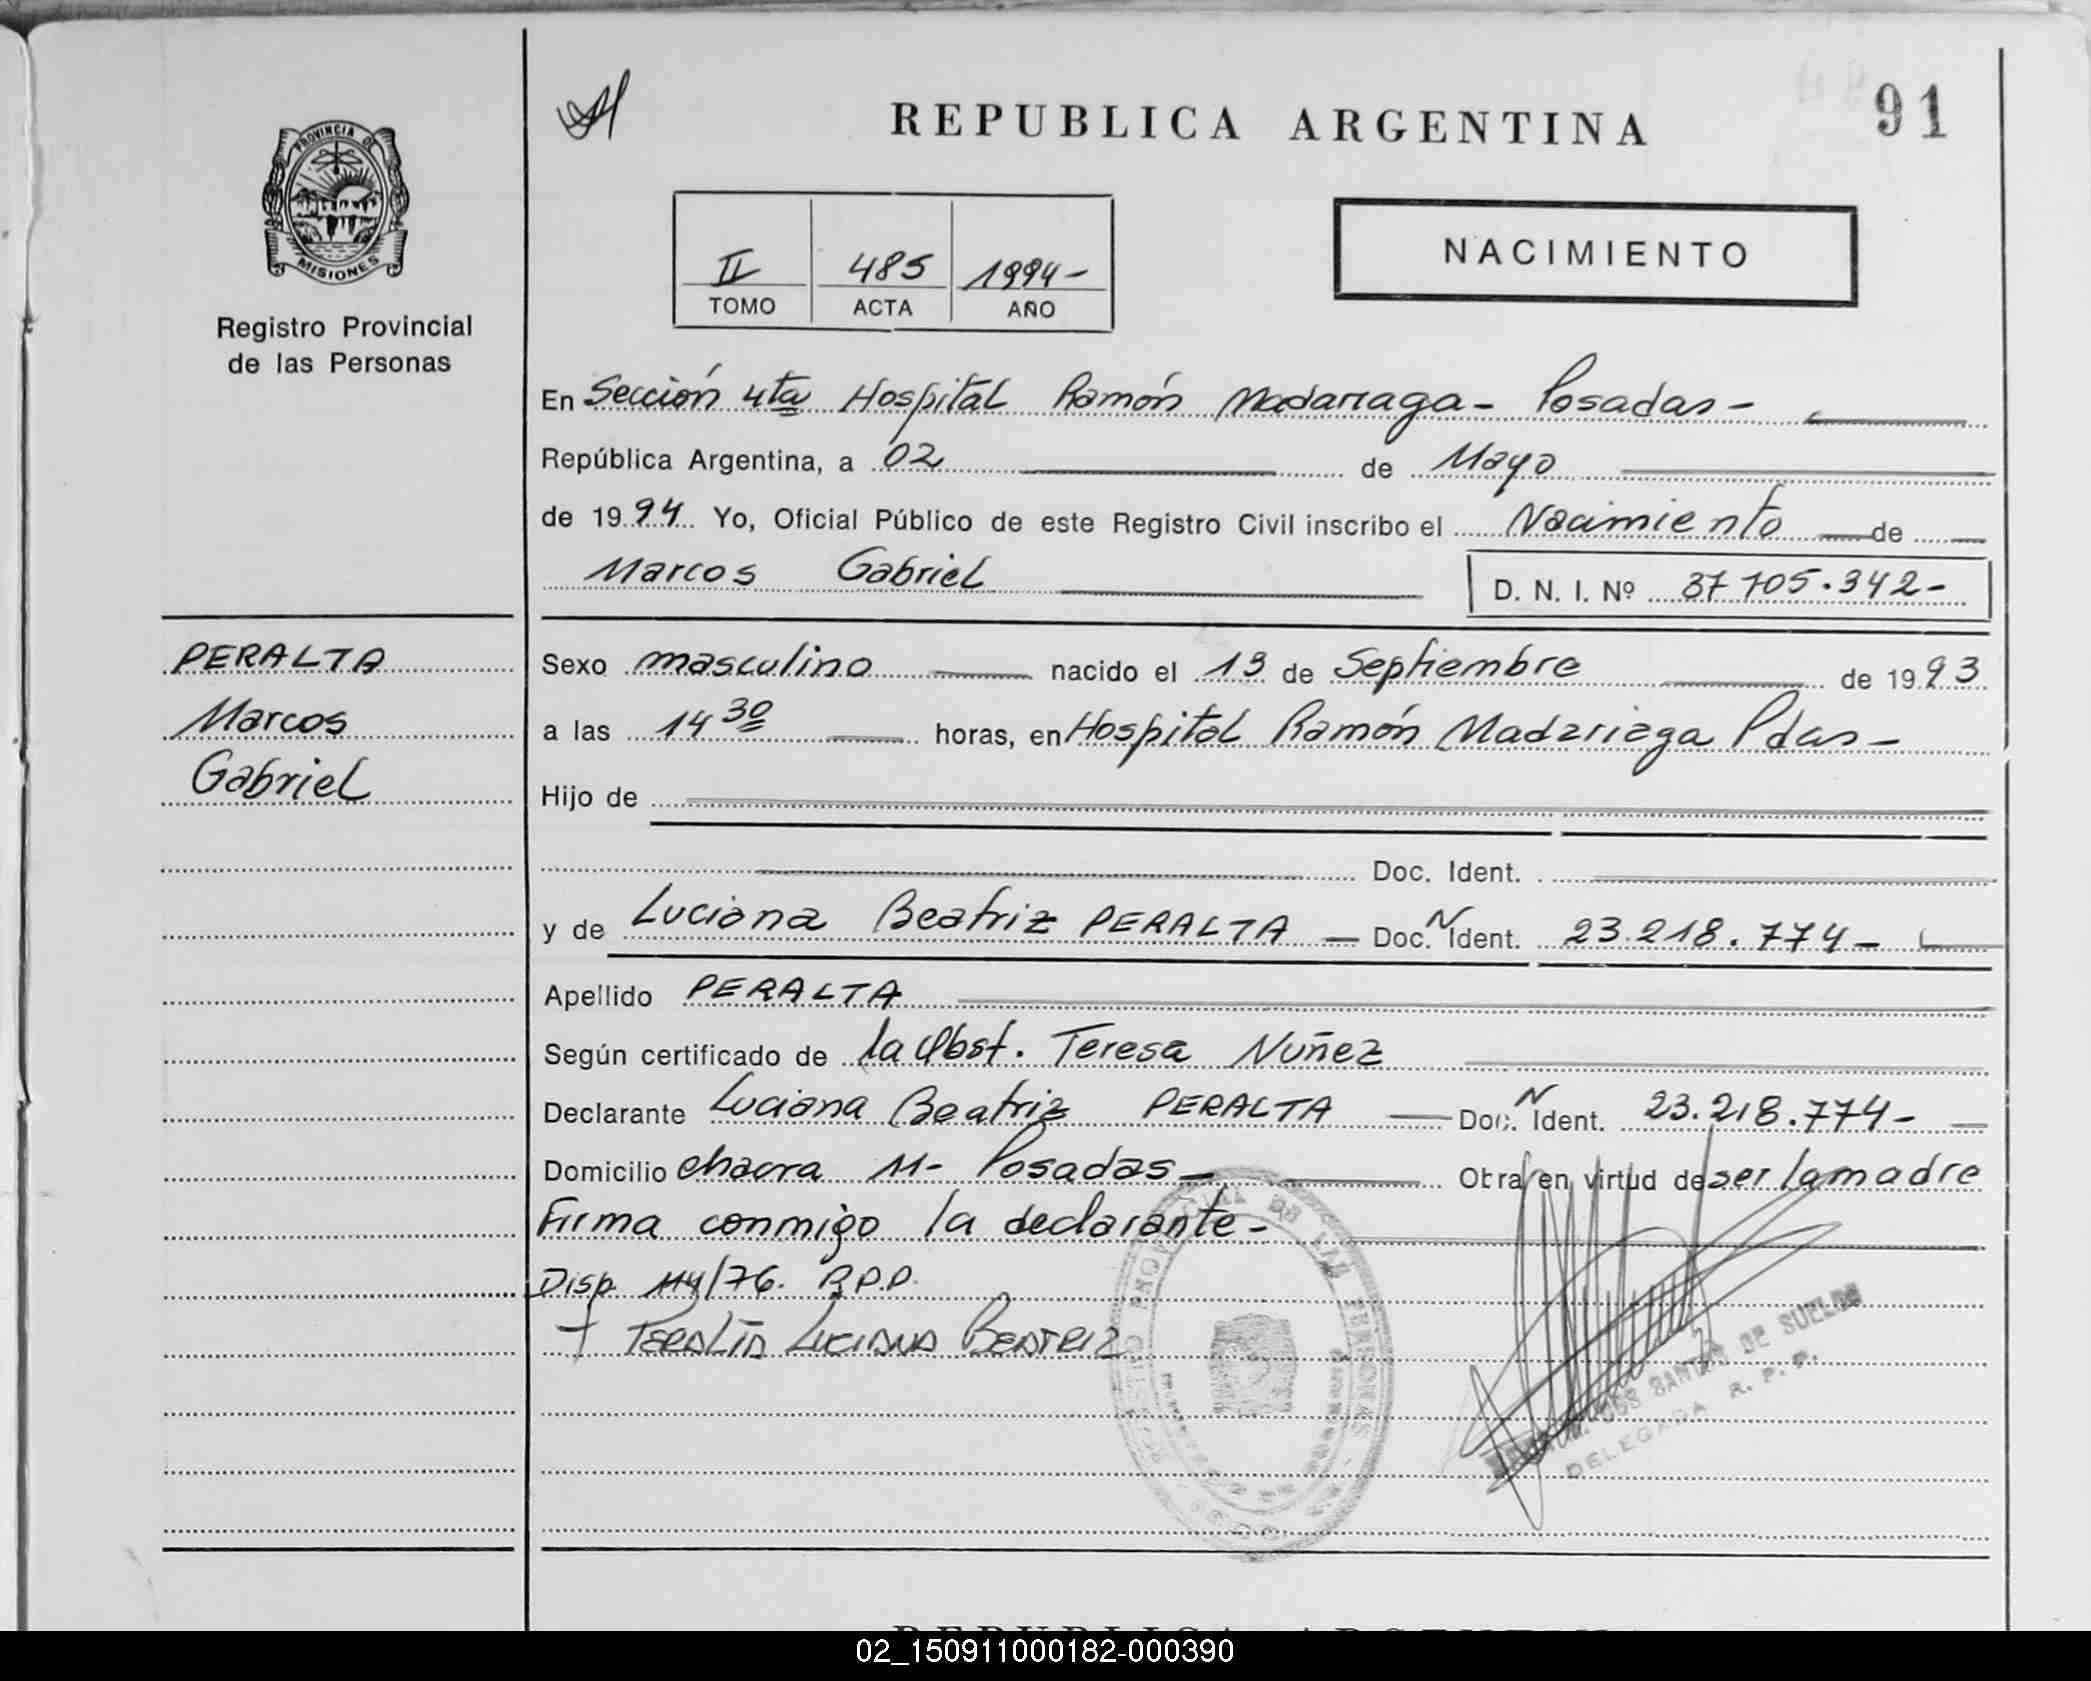 REPUBLICA ARGENTINA
91
PROVINCIA DE
MISIONES
Registro Provincial
de las Personas
II 485 1994-
TOMO ACTA AÑO
NACIMIENTO
En Sección 4ta Hospital Ramón Madariaga - Posadas -
República Argentina, a 02 de Mayo
de 1994 Yo, Oficial Público de este Registro Civil inscribo el Nacimiento de
Marcos Gabriel D. N. I. Nº 37 705.342-
PERALTA
Marcos
Gabriel
Sexo masculino nacido el 13 de Septiembre de 1993
a las 14 30 horas, en Hospital Ramón Madariaga Pdas -
Hijo de
Doc. Ident.
y de Luciana Beatriz PERALTA - Doc. N Ident. 23.218.774-
Apellido PERALTA
Según certificado de la Obst. Teresa Nuñez
Declarante Luciana Beatriz PERALTA Doc. N Ident. 23.218.774-
Domicilio chacra 11- Posadas - Obra en virtud de ser la madre
Firma conmigo la declarante -
Disp 114/76. R.P.P.
PERALTA LUCIANA BEATRIZ
SANTOS DE SUELDO
DELEGADA R. P. P.
02_150911000182-000390